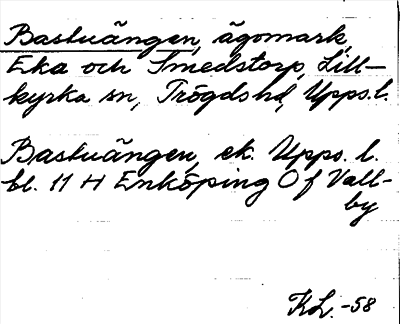 Bastuängen, ägomark,
Eka och Smedstorp, Lill-
kyrka sn, Trögds hd, Upps. l.
Bastuängen, ek. Upps. l.
bl. 11 H Enköping Ö f Vall-
by
KL. -58